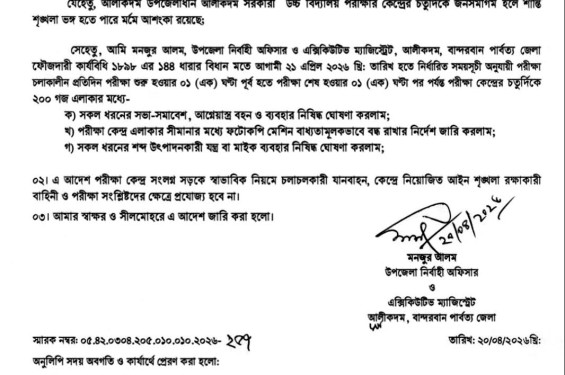 যেহেতু, আলীকদম উপজেলাধীন আলীকদম সরকারী উচ্চ বিদ্যালয় পরীক্ষার কেন্দ্রের চতুর্দিকে জনসমাগম হলে শান্তি
শৃঙ্খলা ভঙ্গ হতে পারে মর্মে আশংকা রয়েছে;
সেহেতু, আমি মনজুর আলম, উপজেলা নির্বাহী অফিসার ও এক্সিকিউটিভ ম্যাজিস্ট্রেট, আলীকদম, বান্দরবান পার্বত্য জেলা
ফৌজদারী কার্যবিধি ১৮৯৮ এর ১৪৪ ধারার বিধান মতে আগামী ২১ এপ্রিল ২০২৬ খ্রি: তারিখ হতে নির্ধারিত সময়সূচী অনুযায়ী পরীক্ষা
চলাকালীন প্রতিদিন পরীক্ষা শুরু হওয়ার ০১ (এক) ঘন্টা পূর্ব হতে পরীক্ষা শেষ হওয়ার ০১ (এক) ঘন্টা পর পর্যন্ত পরীক্ষা কেন্দ্রের চতুর্দিকে
২০০ গজ এলাকার মধ্যে-
ক) সকল ধরনের সভা-সমাবেশ, আগ্নেয়াস্ত্র বহন ও ব্যবহার নিষিদ্ধ ঘোষণা করলাম;
খ) পরীক্ষা কেন্দ্র এলাকার সীমানার মধ্যে ফটোকপি মেশিন বাধ্যতামূলকভাবে বন্ধ রাখার নির্দেশ জারি করলাম;
গ) সকল ধরনের শব্দ উৎপাদনকারী যন্ত্র বা মাইক ব্যবহার নিষিদ্ধ ঘোষণা করলাম;
০২। এ আদেশ পরীক্ষা কেন্দ্র সংলগ্ন সড়কে স্বাভাবিক নিয়মে চলাচলকারী যানবাহন, কেন্দ্রে নিয়োজিত আইন শৃঙ্খলা রক্ষাকারী
বাহিনী ও পরীক্ষা সংশ্লিষ্টদের ক্ষেত্রে প্রযোজ্য হবে না।
০৩। আমার স্বাক্ষর ও সীলমোহরে এ আদেশ জারি করা হলো।
২০/০৪/২০২৬
মনজুর আলম
উপজেলা নির্বাহী অফিসার
ও
এক্সিকিউটিভ ম্যাজিস্ট্রেট
আলীকদম, বান্দরবান পার্বত্য জেলা
স্মারক নম্বর: ০৫.৪২.০৩০৪.২০৫.০১০.০১০.২০২৬-
তারিখ: ২০/০৪/২০২৬খ্রি:
অনুলিপি সদয় অবগতি ও কার্যার্থে প্রেরণ করা হলো: